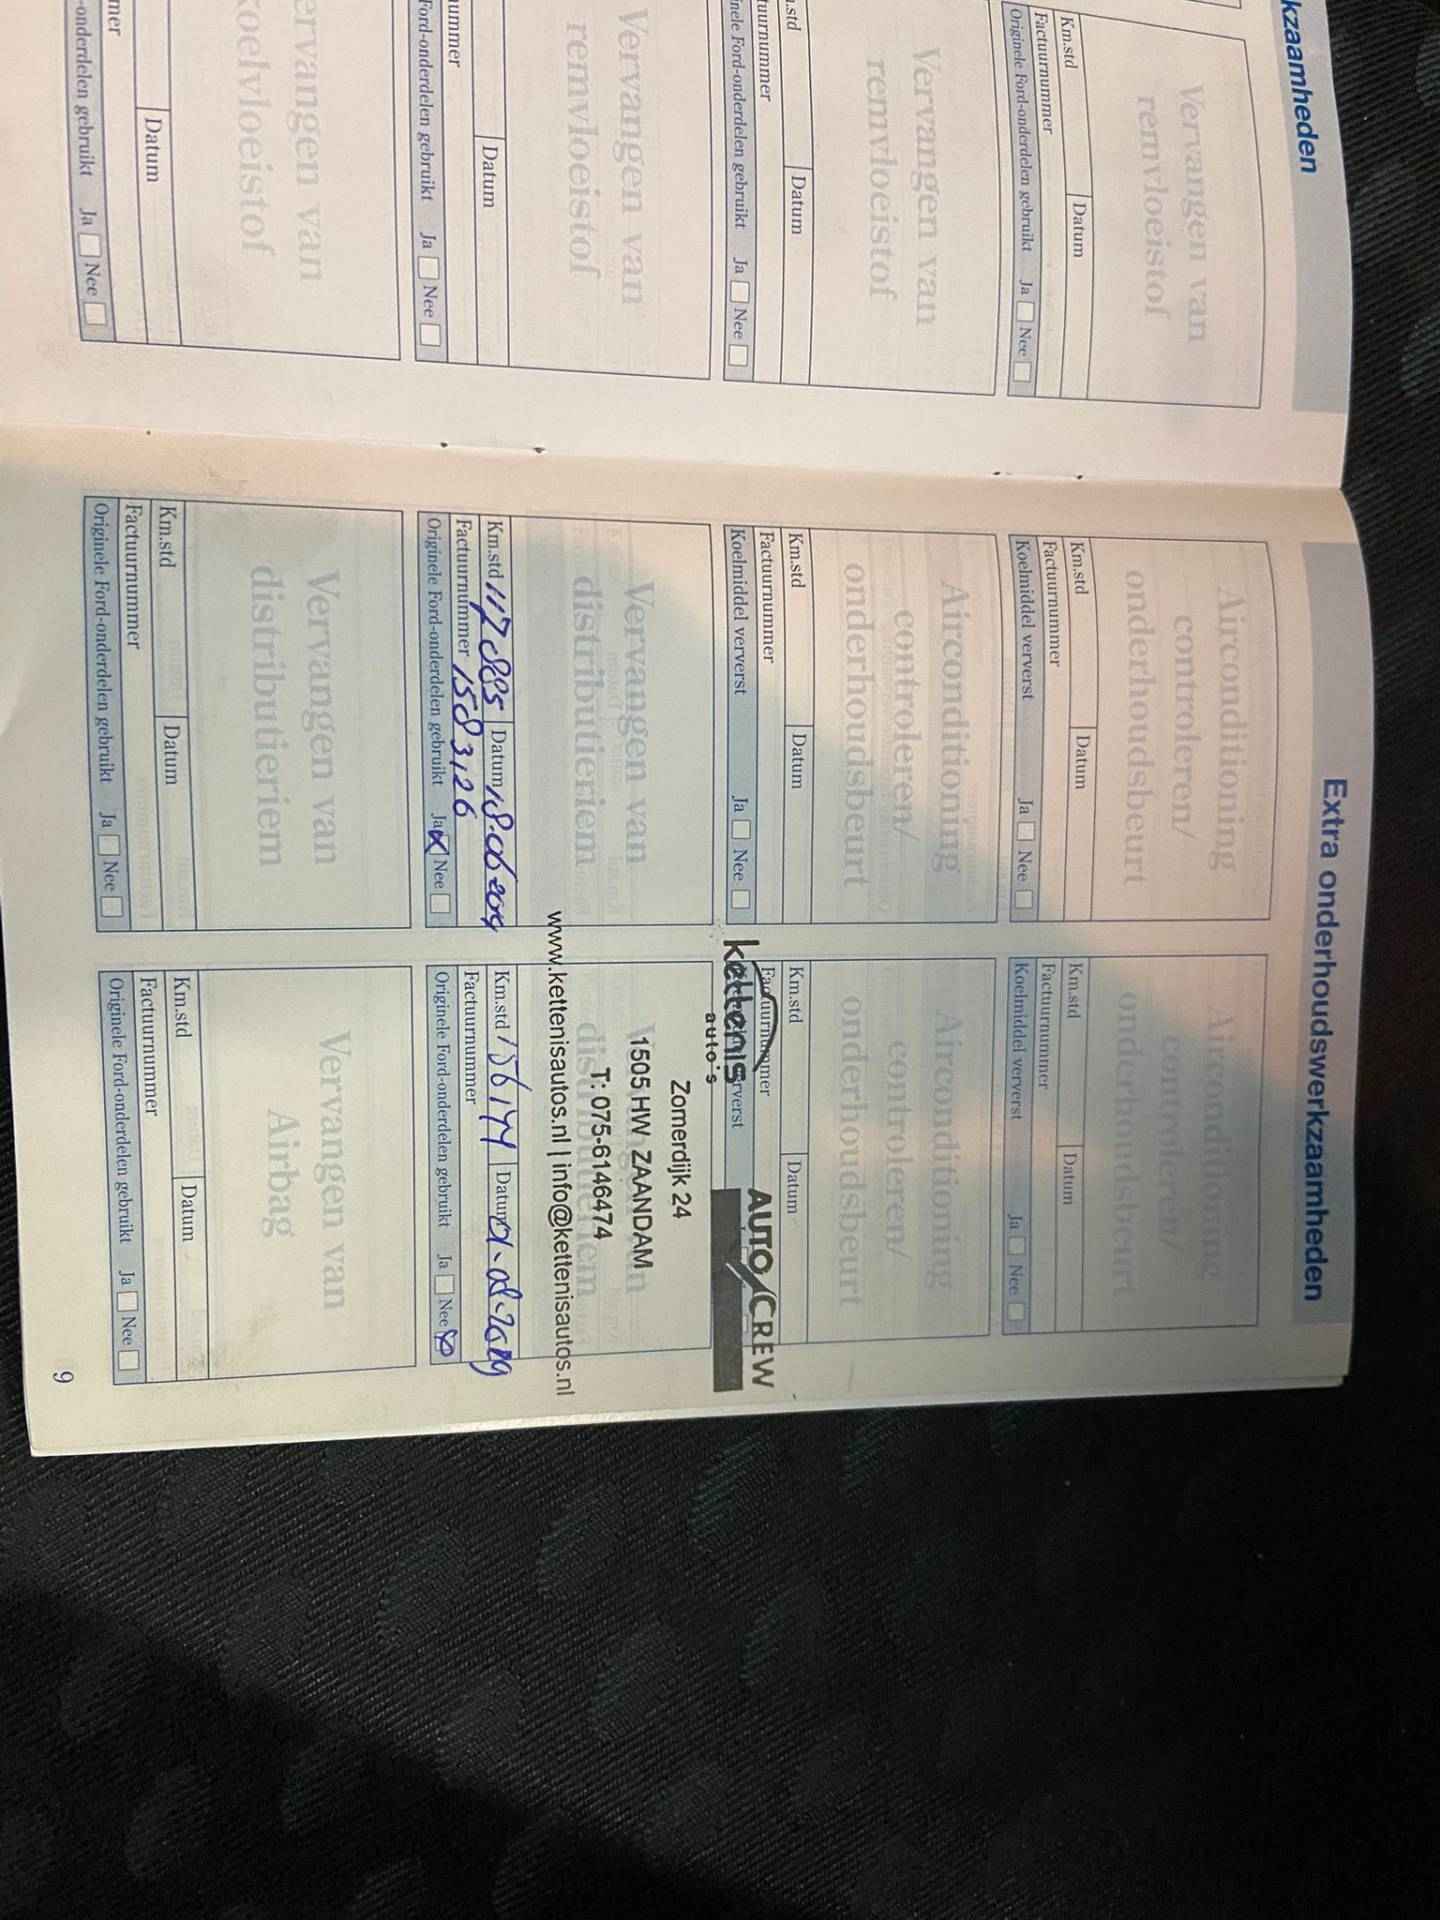 kzaamheden
Vervangen van
remvloeistof
Km.std
Datum
Factuurnummer
Originele Ford-onderdelen gebruikt Ja Nee
Vervangen van
remvloeistof
.std
Datum
tuurnummer
inele Ford-onderdelen gebruikt Ja Nee
Vervangen van
remvloeistof
Datum
ummer
Ford-onderdelen gebruikt Ja Nee
ervangen van
koelvloeistof
Datum
mer
-onderdelen gebruikt Ja Nee
Extra onderhoudswerkzaamheden
Airconditioning
controleren/
onderhoudsbeurt
Km.std
Datum
Factuurnummer
Koelmiddel ververst Ja Nee
Airconditioning
controleren/
onderhoudsbeurt
Km.std
Datum
Factuurnummer
Koelmiddel ververst Ja Nee
Airconditioning
controleren/
onderhoudsbeurt
Km.std
Datum
Factuurnummer
Koelmiddel ververst Ja Nee
Airconditioning
controleren/
onderhoudsbeurt
Km.std
Datum
Factuurnummer
rverst
kettenis
auto's
AUTO CREW
Zomerdijk 24
1505 HW ZAANDAM
T: 075-6146474
www.kettenisautos.nl | info@kettenisautos.nl
Vervangen van
distributieriem
Km.std 117885 Datum
Factuurnummer 1583126
Originele Ford-onderdelen gebruikt Ja X Nee
Km.std 156144 Datum 01-08-2019
Factuurnummer
Originele Ford-onderdelen gebruikt Ja Nee
Vervangen van
distributieriem
Km.std
Datum
Factuurnummer
Originele Ford-onderdelen gebruikt Ja Nee
Vervangen van
Airbag
Km.std
Datum
Factuurnummer
Originele Ford-onderdelen gebruikt Ja Nee
9